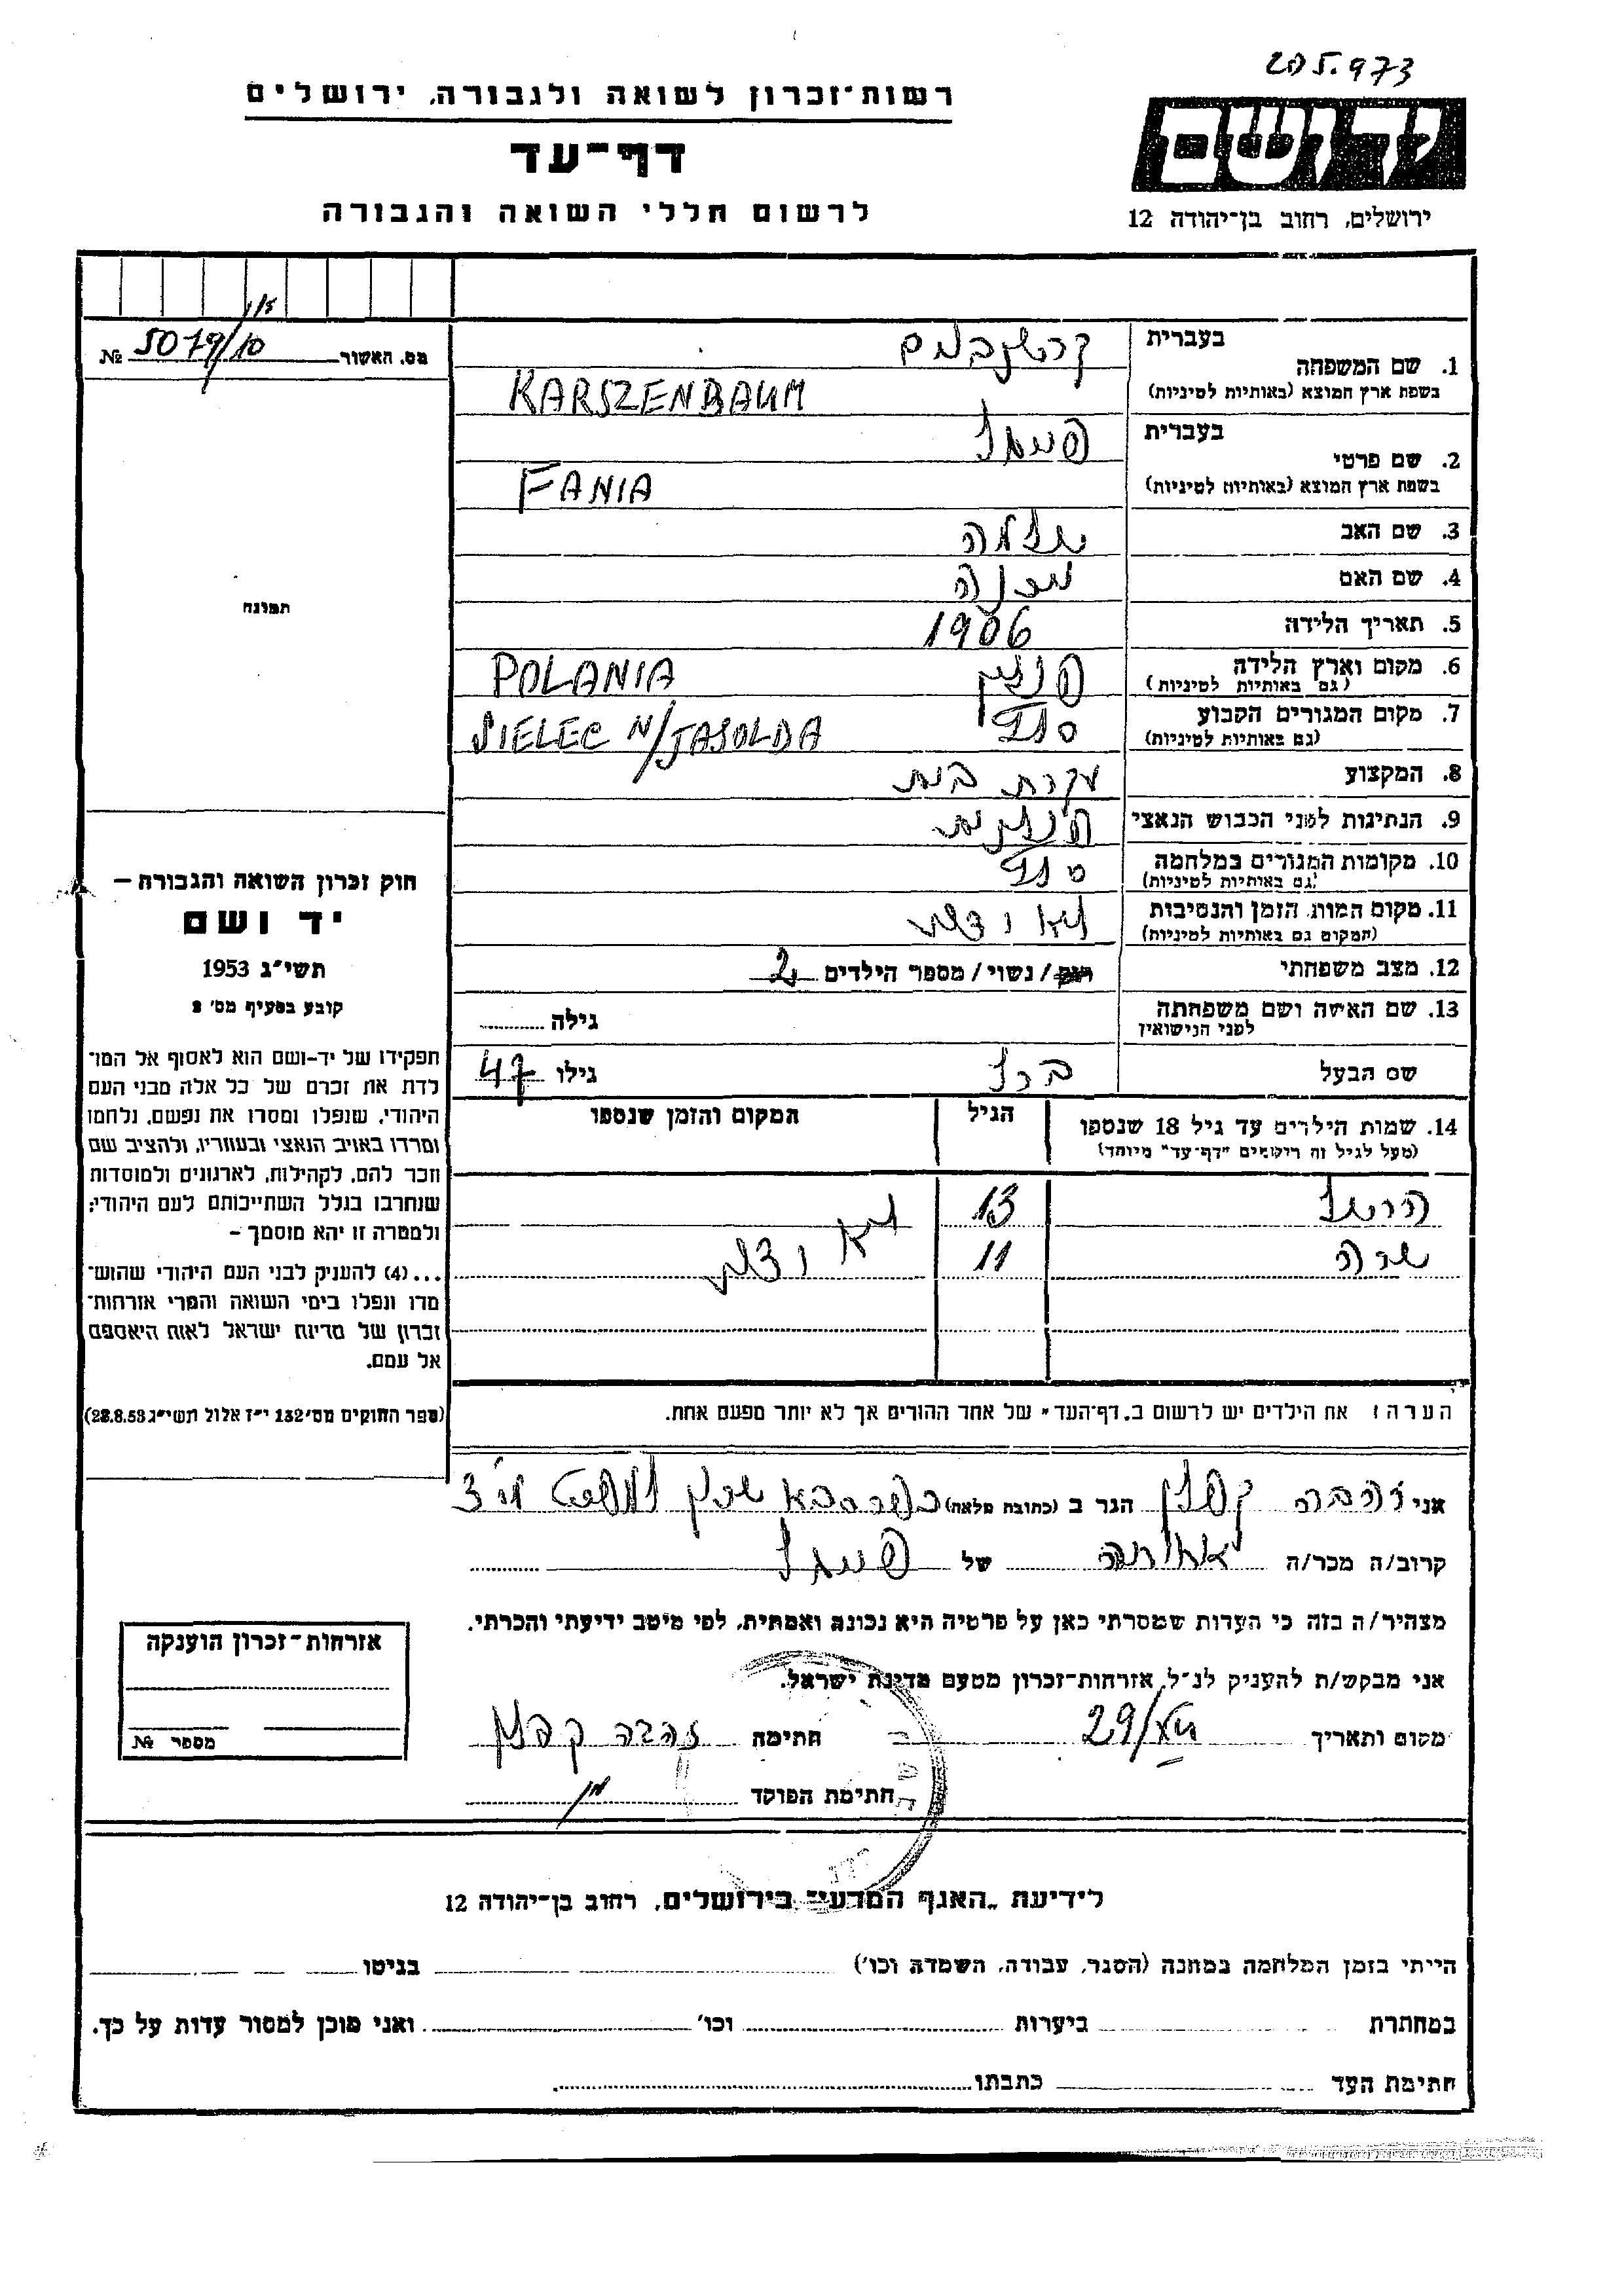 205.973
ידושם
ירושלים, רחוב בן־יהודה 12
רשות־זכרון לשואה ולגבורה, ירושלים
דף־עד
לרשום חללי השואה והגבורה
מס. האשור 5079/10 №
תמונה
1. שם המשפחה
בעברית קרשנבוים
בשפת ארץ המוצא (באותיות לטיניות) KARSZENBAUM
2. שם פרטי
בעברית
בשפת ארץ המוצא (באותיות לטיניות) FANIA
3. שם האב שלמה
4. שם האם
5. תאריך הלידה 1906
6. מקום וארץ הלידה
(גם באותיות לטיניות) POLANIA
7. מקום המגורים הקבוע
(גם באותיות לטיניות) SIELEC N/JASOLDA
8. המקצוע עקרת בית
9. הנתינות לפני הכבוש הנאצי
10. מקומות המגורים במלחמה
(גם באותיות לטיניות)
11. מקום המות, הזמן והנסיבות לא ידוע
(המקום גם באותיות לטיניות)
12. מצב משפחתי רווק/ נשוי/ מספר הילדים 2
13. שם האישה ושם משפחתה
לפני הנישואין
גילה
שם הבעל ברל גילו 47
14. שמות הילדים עד גיל 18 שנספו הגיל המקום והזמן שנספו
(מעל לגיל זה רושמים "דף־עד" מיוחד)
הרשל 13
שרה 11 לא ידוע
הערה: את הילדים יש לרשום ב„דף־העד" של אחד ההורים אך לא יותר מפעם אחת.
חוק זכרון השואה והגבורה –
יד ושם
תשי"ג 1953
קובע בסעיף מס' 2
תפקידו של יד-ושם הוא לאסוף אל המו־
לדת את זכרם של כל אלה מבני העם
היהודי, שנפלו ומסרו את נפשם, נלחמו
ומרדו באויב הנאצי ובעוזריו, ולהציב שם
וזכר להם, לקהילות, לארגונים ולמוסדות
שנחרבו בגלל השתייכותם לעם היהודי;
ולמטרה זו יהא מוסמך –
...(4) להעניק לבני העם היהודי שהוש־
מדו ונפלו בימי השואה והמרי אזרחות־
זכרון של מדינת ישראל לאות היאספם
אל עמם.
(ספר החוקים מס' 132 י"ז אלול תשי"ג 28.8.53)
אני זהבה קפלן הגר ב (כתובת מלאה)
קרוב/ה מכר/ה של
מצהיר/ה בזה כי העדות שמסרתי כאן על פרטיה היא נכונה ואמתית, לפי מיטב ידיעתי והכרתי.
אני מבקש/ת להעניק לנ"ל, אזרחות־זכרון מטעם מדינת ישראל.
מקום ותאריך חתימה זהבה קפלן
חתימת הפוקד
אזרחות־זכרון הוענקה
מספר №
לידיעת „האגף המדעי" בירושלים, רחוב בן־יהודה 12
הייתי בזמן המלחמה במחנה (הסגר, עבודה, השמדה וכו') בגיטו
במחתרת ביערות וכו' ואני מוכן למסור עדות על כך.
חתימת העד כתבתו